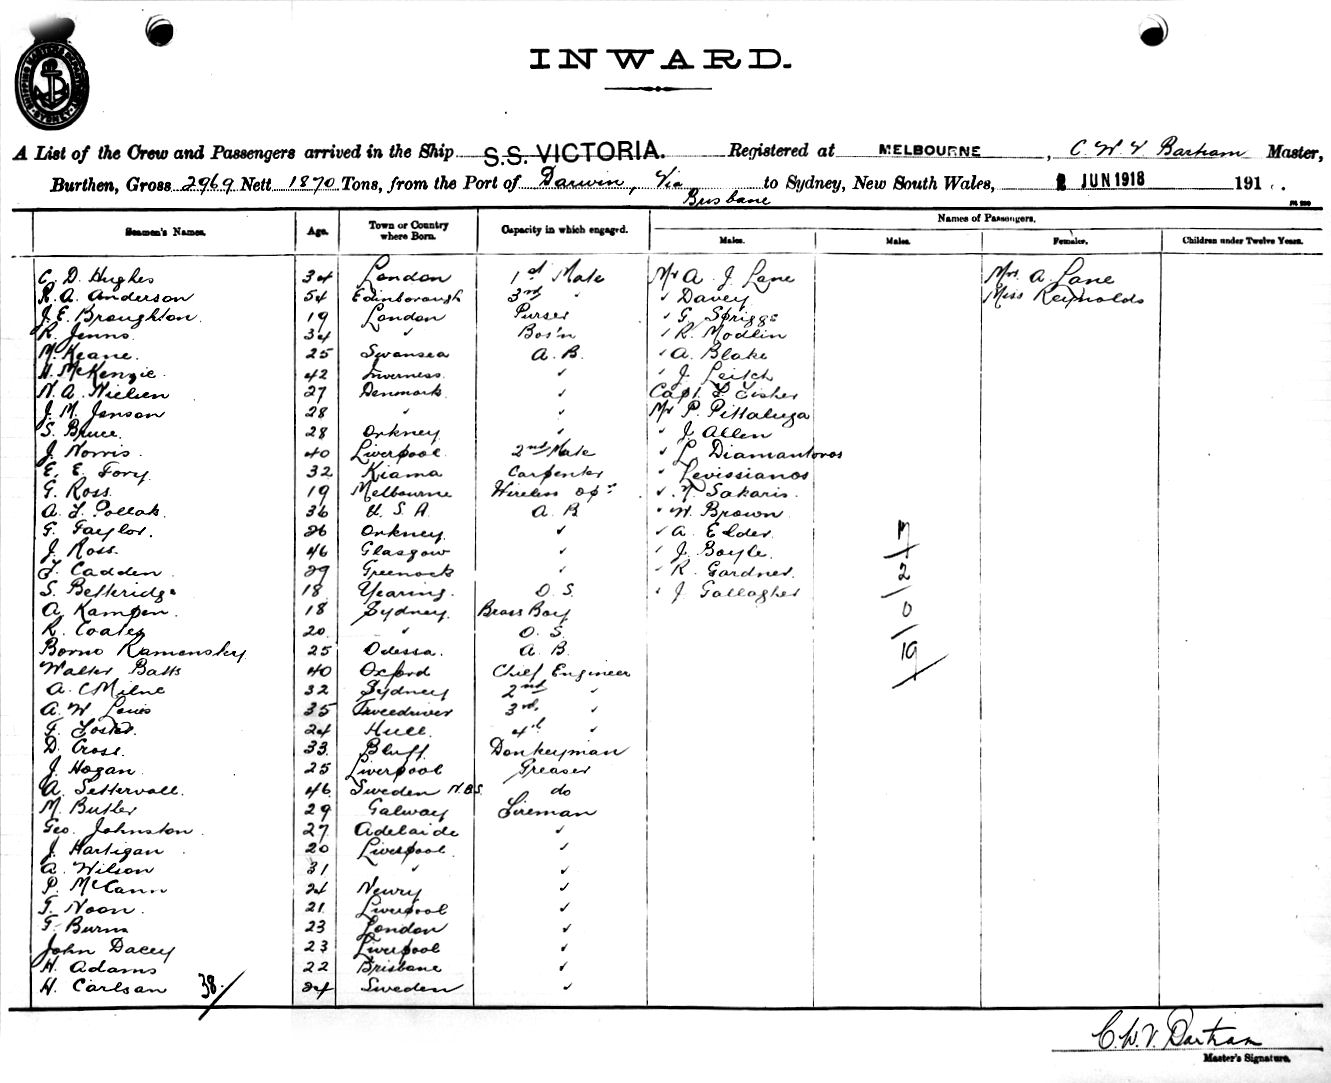 INWARD.
A List of the Crew and Passengers arrived in the Ship S.S. VICTORIA. Registered at MELBOURNE, C. W. V Barham Master,
Burthen, Gross 2969 Nett 1870 Tons, from the Port of Darwin, Via Brisbane to Sydney, New South Wales, 2 JUN 1918 191
Seamen's Names. Age. Town or Country where Born. Capacity in which engaged. Names of Passengers.
Males. Males. Females. Children under Twelve Years.
C. D. Hughes 34 London 1st Mate Mr A. J Lane Mrs A Lane
R. A. Anderson 54 Edinborough 3rd " " Davey Miss Reynolds
J. E. Broughton 19 London Purser " G Spriggs
R. Jenns 34 " Bos'n " R. Modlin
M. Keane 25 Swansea A. B. " A. Blake
H. McKenzie 42 Inverness " " J. Leitch
N. A. Nielsen 27 Denmark " Capt. F. Fisher
J. M. Jenson 28 " " Mr P. Pittaluga
S. Bruce 28 Orkney " " J Allen
J. Norris 40 Liverpool 2nd Mate " L. Diamantoros
E. E. Tory 32 Kiama Carpenter " Levissianos
G. Ross 19 Melbourne Wireless opr " Sakaris
A. F. Pollak 36 U. S. A A. B " W. Brown
G. Taylor 26 Orkney " " A Elder
J. Ross 46 Glasgow " " J. Boyle
J. Cadden 29 Greenock " " R. Gardner
S. Betteridge 18 Yearing O. S. " J Gallagher
A. Kampen 18 Sydney Brass Boy
R. Coates 20 " O. S.
Borno Ramensky 25 Odessa A. B.
Walter Batts 40 Oxford Chief Engineer
A. C Milne 32 Sydney 2nd "
A. W Lewis 35 3rd "
F. Foster 24 Hull 4th "
D. Cross 33 Bluff Donkeyman
J. Hogan 25 Liverpool Greaser
A. Settervall 46 Sweden N.B.S. do
M. Butler 29 Galway Fireman
Geo. Johnston 27 Adelaide "
J. Hartigan 20 Liverpool "
A. Wilson 31 " "
P. McCann 24 Newry "
T. Noon 21 Liverpool "
F. Burns 23 London "
John Dacey 23 Liverpool "
H. Adams 22 Brisbane "
H. Carlson 24 Sweden "
38/
17/2/0/19
C. W. V. Barham
Master's Signature.